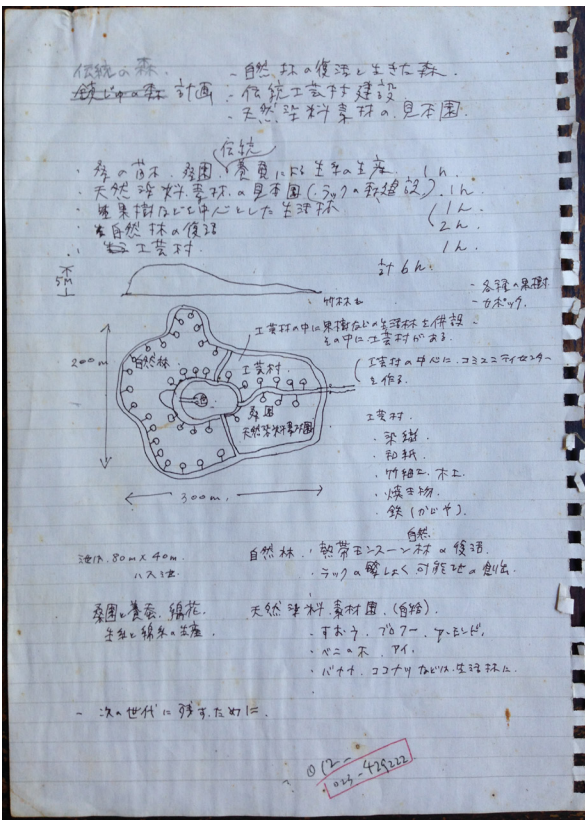 伝統の森
鎮じゅの森 計画
- 自然林の復活と生きた森.
・伝統工芸村建設
・天然染料素材の見本園.
伝統
・桑の苗木. 桑園. 養蚕による生糸の生産. 1h.
・天然染料素材の見本園(ラックの新建設). 1h.
・果樹などを中心とした生活林 1h.
・自然林の復活 2h.
・工芸村. 1h.
計6h.
5M
竹林も
- 各種の果樹
- カポック.
工芸村の中に果樹などの生活林も併設-
その中に工芸村がある.
200m
自然林
工芸村
工芸村の中心に.コミュニティセンター
を作る.
池
桑園
天然染料素材園
300m.
工芸村.
・染織.
・和紙.
・竹細工. 木工
・焼き物.
・鉄(かじや).
池は.80m×40m.
ハス池.
自然林.
自然
・熱帯モンスーン林の復活.
・ラックの 可能地の創出.
桑園と養蚕. 綿花.
生糸と綿糸の生産.
天然染料素材園.(自給).
・すおう. プロフー. アーモンド.
・ベニの木. アイ.
・バナナ. ココナツなどは.生活林に.
- 次の世代に残すために.
012-
023-429222